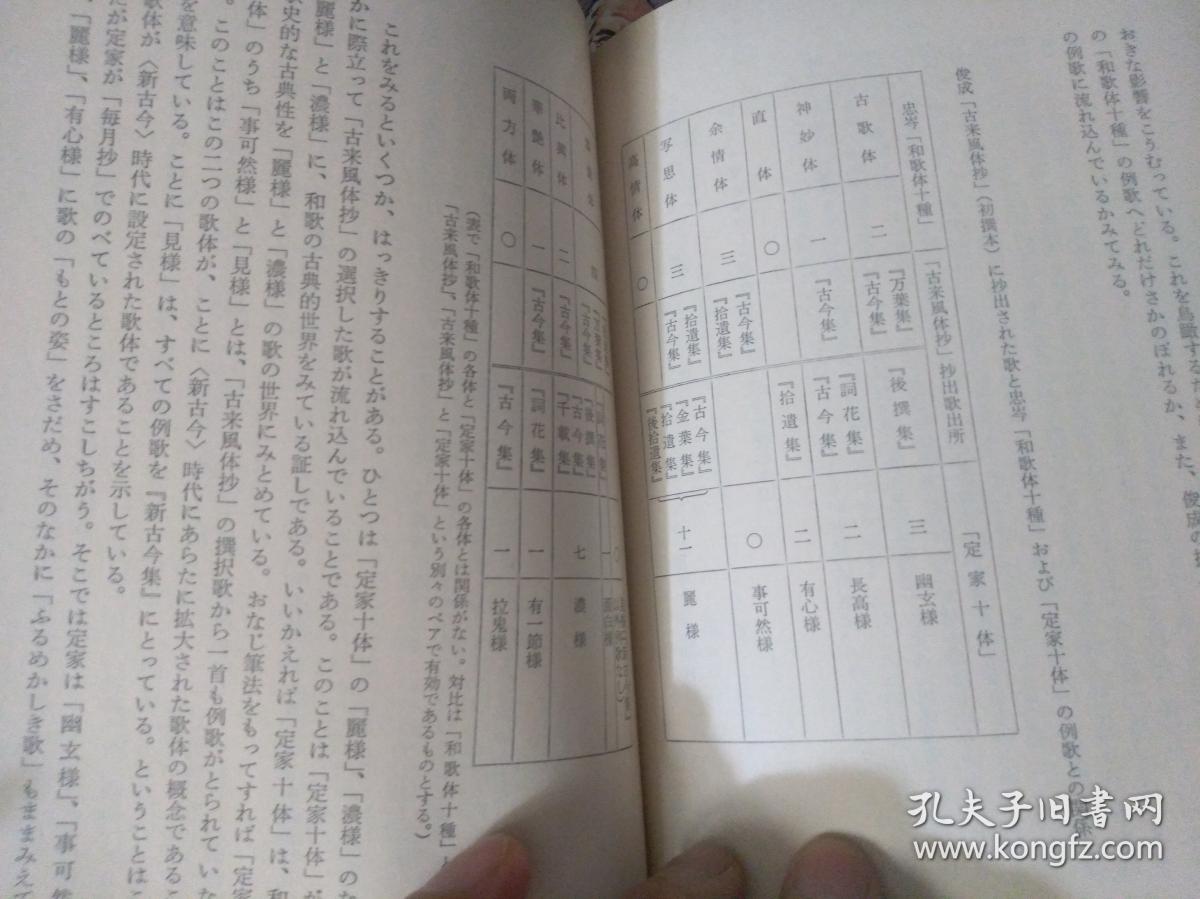 おきな影響をこうむっている。これを鳥瞰する
の「和歌体十種」の例歌へどれだけさかのぼれるか、また、俊成の
の例歌に流れ込んでいるかみてみる。
俊成「古来風体抄」(初撰本)に抄出された歌と忠岑「和歌体十種」および「定家十体」の例歌との
忠岑「和歌体十種」
「古来風体抄」抄出歌出所
「定家十体」
古歌体 二 『万葉集』『古今集』
『後撰集』 三 幽玄様
神妙体 一 『古今集』
『詞花集』『古今集』 二 長高様
直体 〇
『拾遺集』 二 有心様
余情体 三 『古今集』『拾遺集』
〇 事可然様
写思体 三 『拾遺集』『古今集』
『古今集』『金葉集』『拾遺集』『後拾遺集』 十一 麗様
高情体 〇
比興体 二 『古今集』
『後撰集』『古今集』『千載集』 七 濃様
華艶体 一 『古今集』
『詞花集』 一 有一節様
両方体 〇
『古今集』 一 拉鬼様
(表で「和歌体十種」の各体と「定家十体」の各体とは関係がない。対比は「和歌体十種」と
「古来風体抄」、「古来風体抄」と「定家十体」という別々のペアで有効であるものとする。)
これをみるといくつか、はっきりすることがある。ひとつは「定家十体」の「麗様」、「濃様」のな
かに際立って「古来風体抄」の選択した歌が流れ込んでいることである。このことは「定家十体」が
「麗様」と「濃様」に、和歌の古典的世界をみている証しである。いいかえれば「定家十体」は、和
史的な古典性を「麗様」と「濃様」の歌の世界にみとめている。おなじ筆法をもってすれば「定家
体」のうち「事可然様」と「見様」とは、「古来風体抄」の撰択歌から一首も例歌がとられていな
。このことはこの二つの歌体が、ことに〈新古今〉時代にあらたに拡大された歌体の概念であるこ
を意味している。ことに「見様」は、すべての例歌を『新古今集』にとっている。ということはこ
歌体が〈新古今〉時代に設定された歌体であることを示している。
だが定家が「毎月抄」でのべているところはすこしちがう。そこでは定家は「幽玄様」、「事可然
、「麗様」、「有心様」に歌の「もとの姿」をさだめ、そのなかに「ふるめかしき歌」もままみえて
孔夫子旧书网
www.kongfz.com